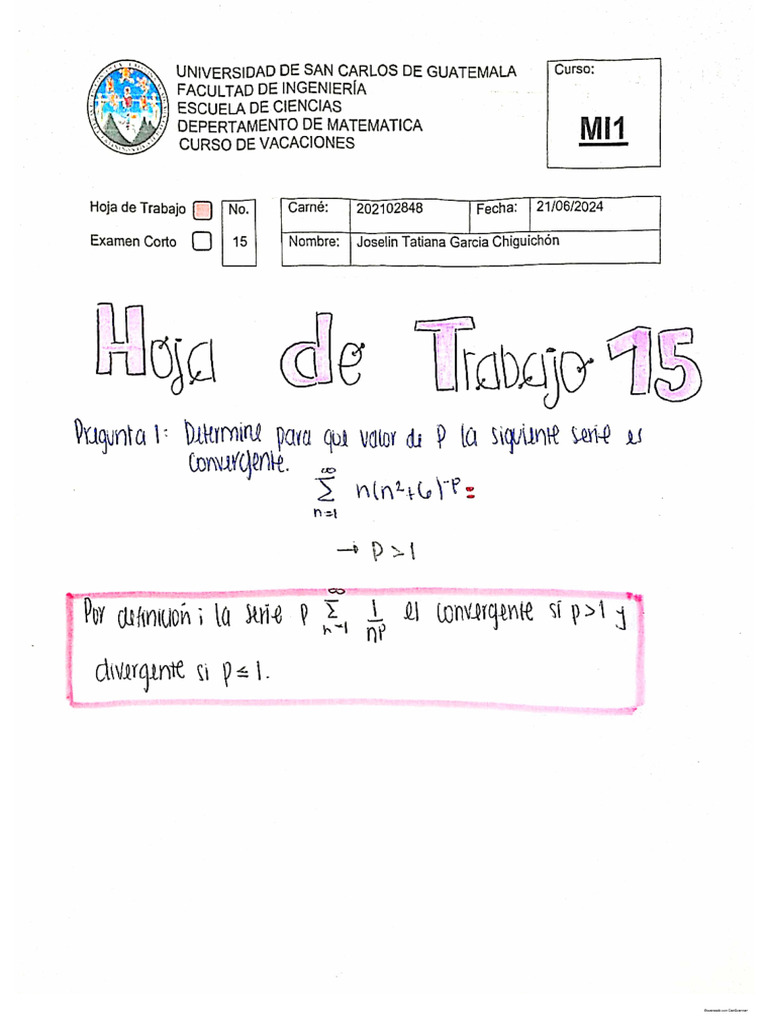 UNIVERSIDAD DE SAN CARLOS DE GUATEMALA
FACULTAD DE INGENIERÍA
ESCUELA DE CIENCIAS
DEPERTAMENTO DE MATEMATICA
CURSO DE VACACIONES
Curso:
MI1
Hoja de Trabajo
Examen Corto
No.
15
Carné: 202102848 Fecha: 21/06/2024
Nombre: Joselin Tatiana Garcia Chiguichón
Hoja de Trabajo 15
Pregunta 1: Determine para que valor de P la siguiente serie es
convergente.
∞
Σ n(n²+6)⁻ᵖ=
n=1
→ P>1
Por definición; la serie P ∞Σn=1 1/nᵖ es convergente si p>1 y
divergente si p≤1.
Escaneado con CamScanner